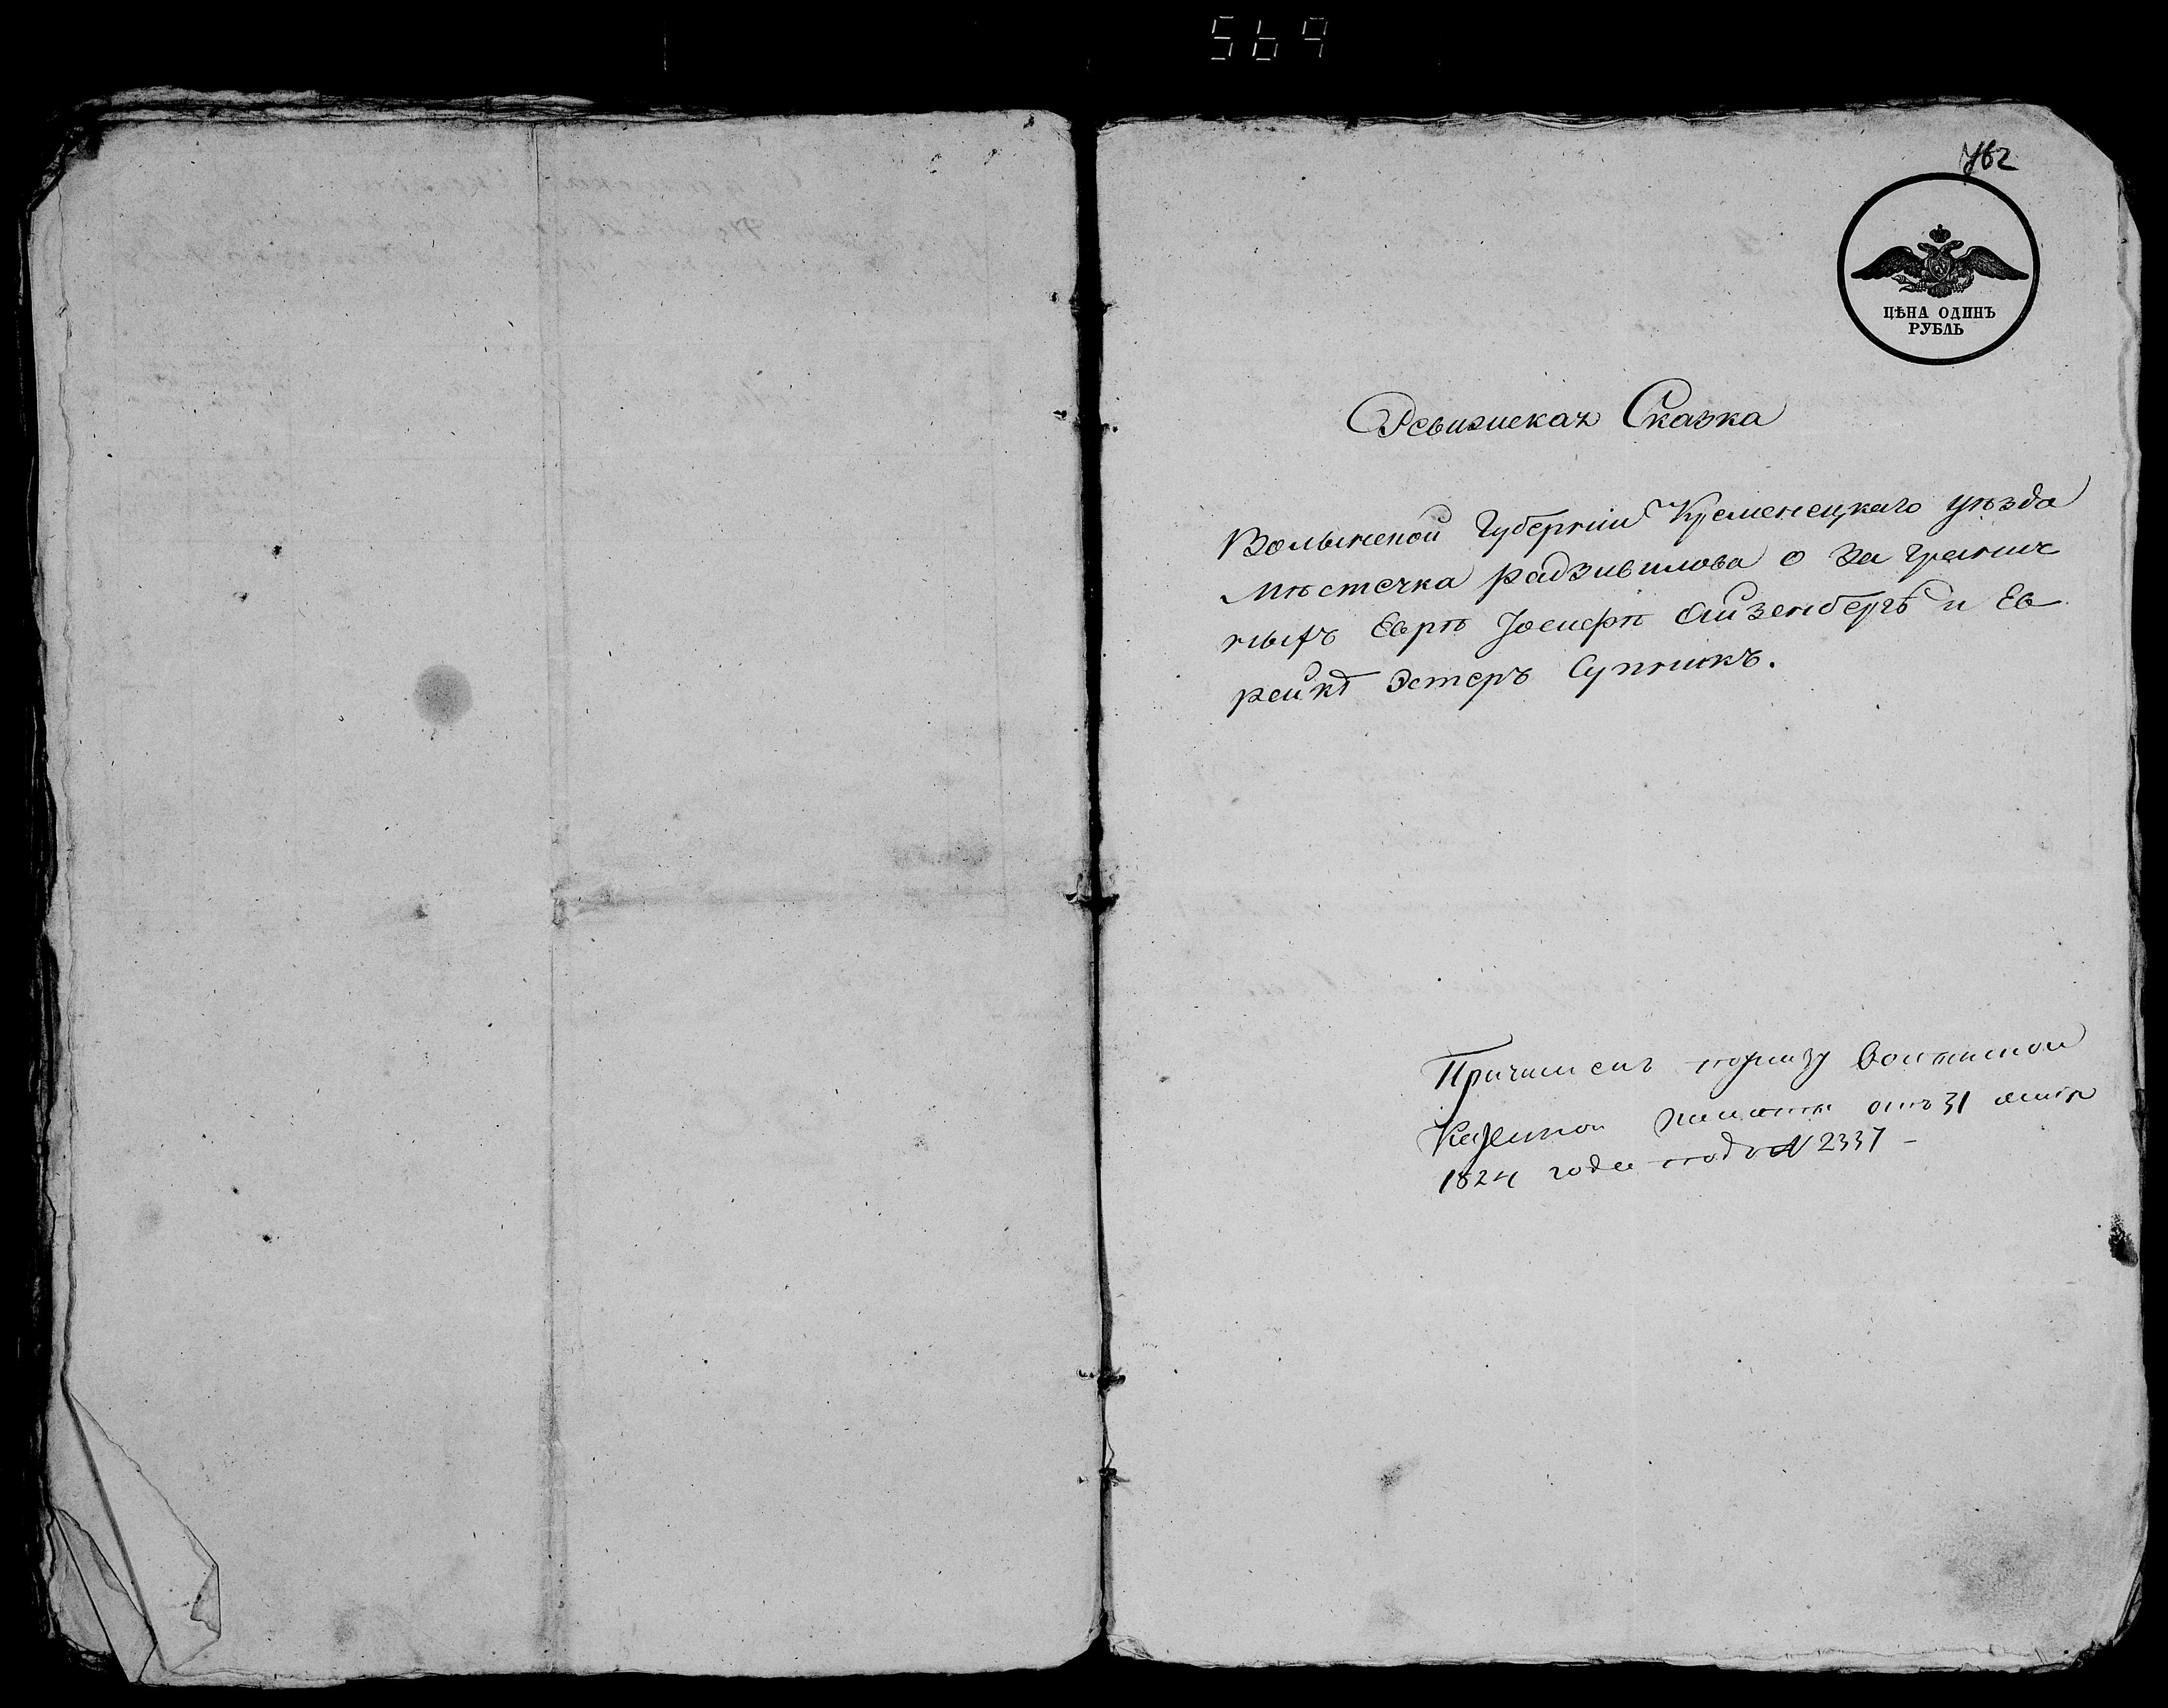 569
762
ЦѢНА ОДИНЪ
РУБЛЬ
Ревизская Сказка
Волынской Губерніи Кременецкаго уѣзда
Мѣстечка Радзивилова о За гранич
ныхъ Евреѣ Іосифѣ Айзенбергѣ и Ев
рейкѣ Эстерѣ Супникъ.
Причислены Волынской
Казенной Палаты отъ 31
1824 года подъ № 2337